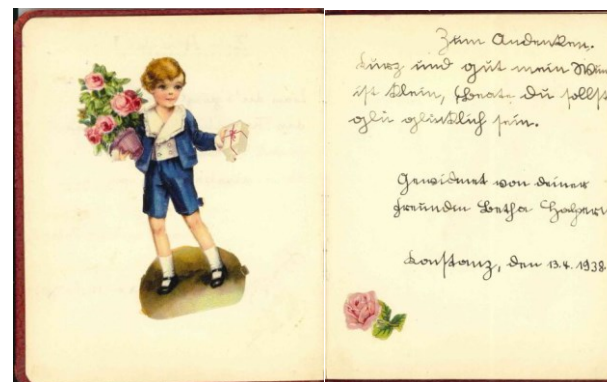 Zum Andenken.
Kurz und gut mein
ist klein, Beate Du sollst
glü glücklich sein.
Gewidmet von deiner
Freundin Betha
Konstanz, den 13.4.1938